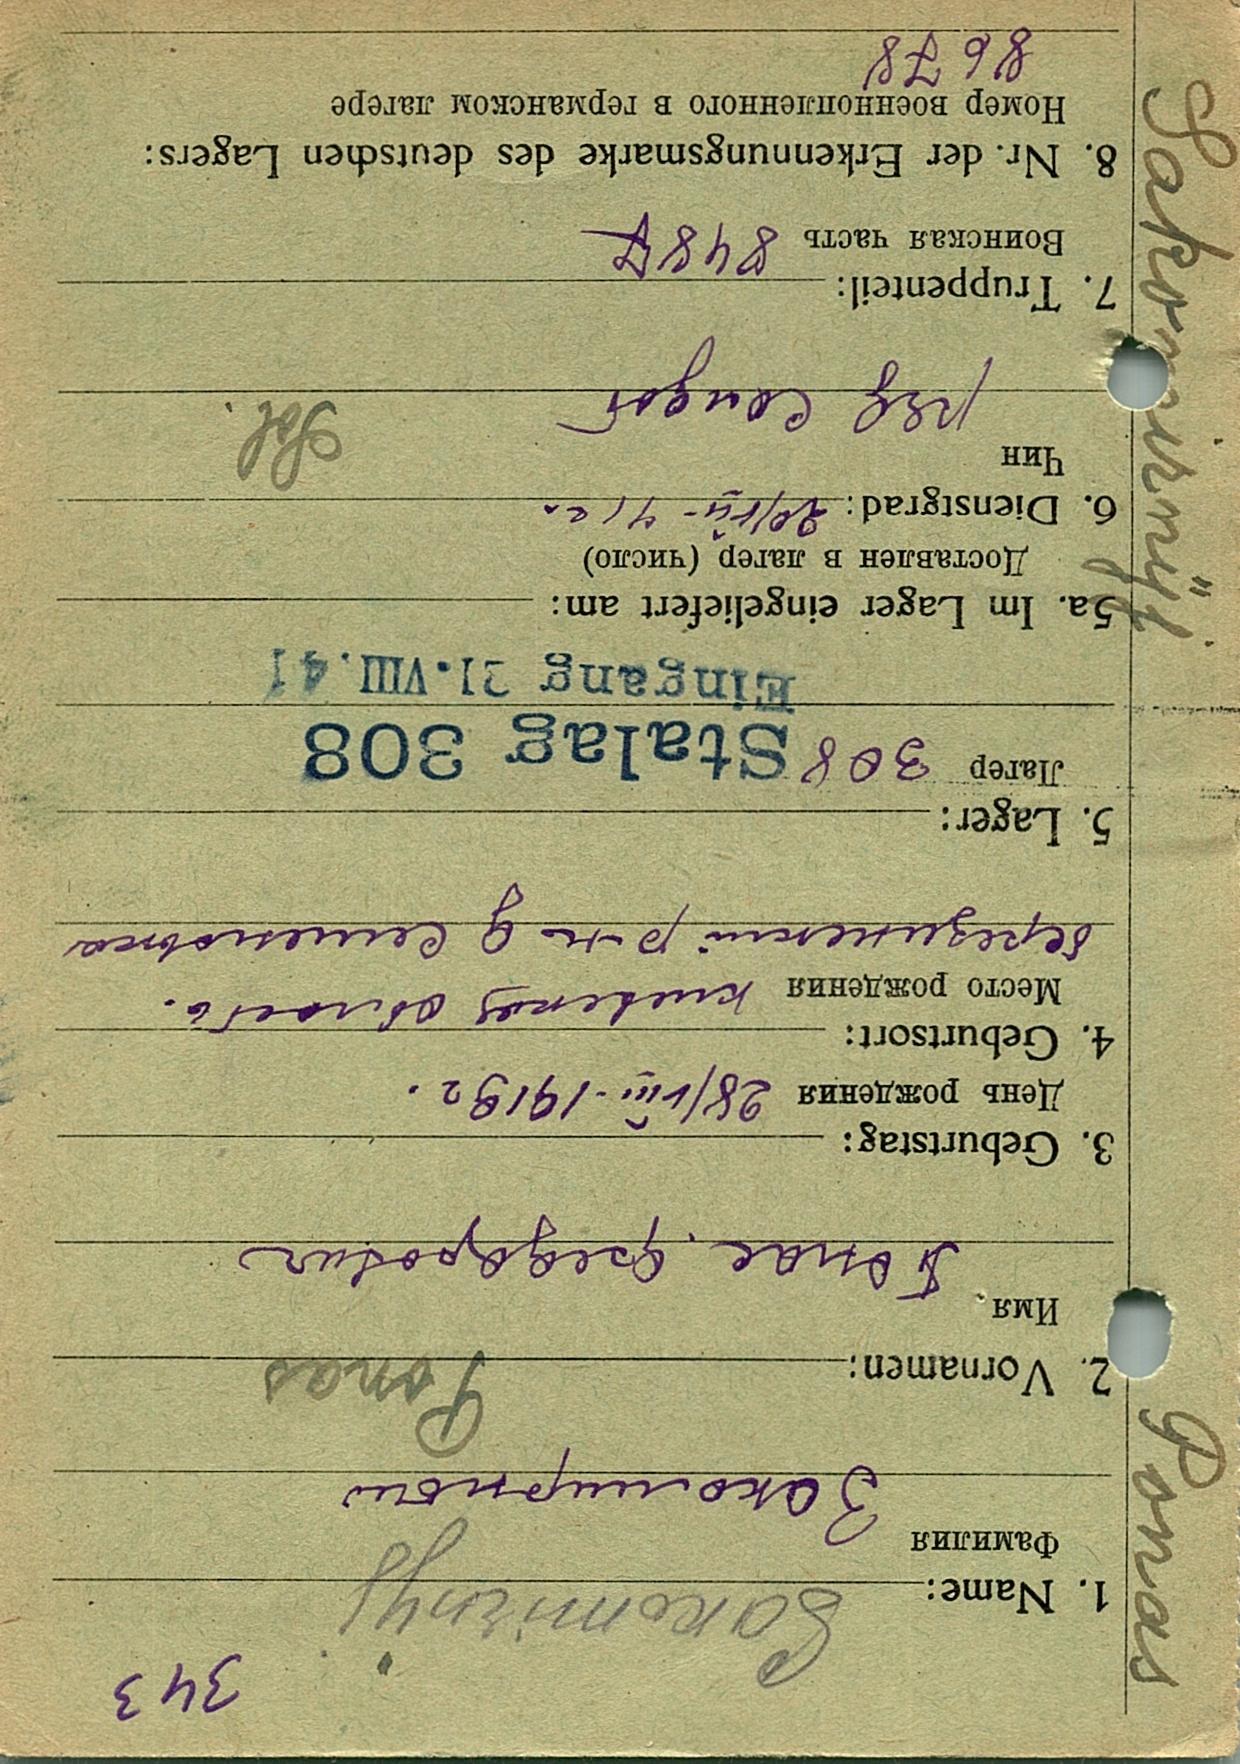 343
1. Name: Sakomirnyj
Фамилия Закомирный
2. Vornamen: Ponas
Имя Понас Федорович
3. Geburtstag:
День рождения 28/VIII-1919г.
4. Geburtsort:
Место рождения киевская область.
березинский р-н д Семеновка
5. Lager:
Лагер 308 Stalag 308
Eingang 21.VIII.41
5a. Im Lager eingeliefert am:
Доставлен в лагер (число)
6. Dienstgrad: 20/VII-41г.
Чин
ряд Солдат Sol.
7. Truppenteil:
Воинская часть 8487
8. Nr. der Erkennungsmarke des deutschen Lagers:
Номер военнопленного в германском лагере
8678
Sakomirnyj Ponas